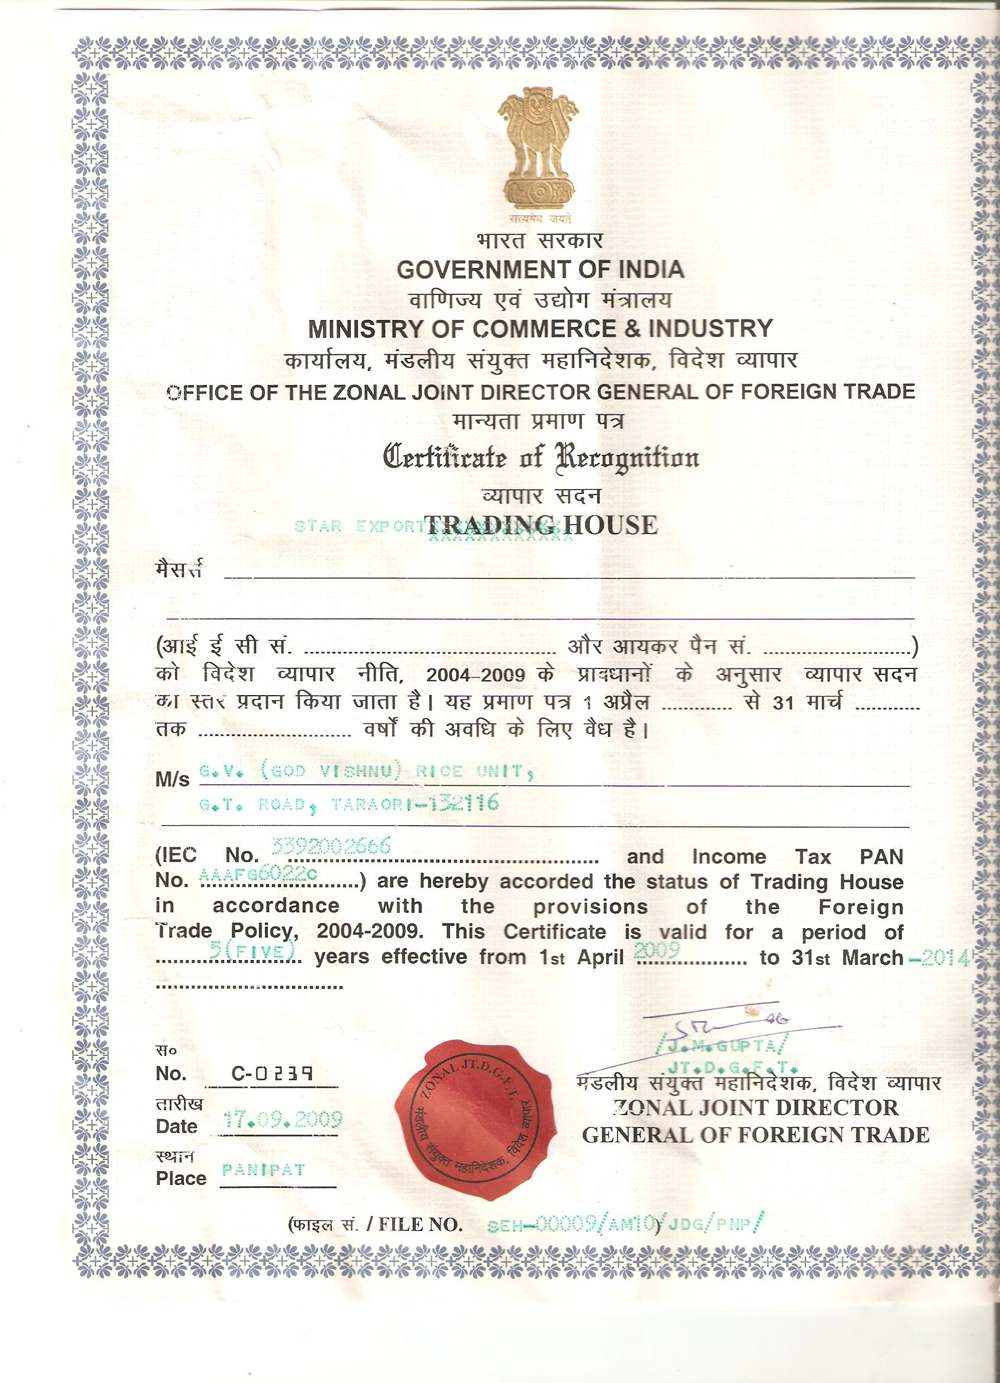 सत्यमेव जयते
भारत सरकार
GOVERNMENT OF INDIA
वाणिज्य एवं उद्योग मंत्रालय
MINISTRY OF COMMERCE & INDUSTRY
कार्यालय, मंडलीय संयुक्त महानिदेशक, विदेश व्यापार
OFFICE OF THE ZONAL JOINT DIRECTOR GENERAL OF FOREIGN TRADE
मान्यता प्रमाण पत्र
Certificate of Recognition
व्यापार सदन
STAR EXPORT TRADING HOUSE
मैसर्स
(आई ई सी सं. ........................................ और आयकर पैन सं. ........................)
को विदेश व्यापार नीति, 2004-2009 के प्रावधानों के अनुसार व्यापार सदन
का स्तर प्रदान किया जाता है। यह प्रमाण पत्र 1 अप्रैल ............ से 31 मार्च ...........
तक .......................... वर्षों की अवधि के लिए वैध है।
M/s G.V. (GOD VISHNU) RICE UNIT,
G.T. ROAD, TARAORI-132116
(IEC No. 3392002666 and Income Tax PAN
No. AAAFG6022C) are hereby accorded the status of Trading House
in accordance with the provisions of the Foreign
Trade Policy, 2004-2009. This Certificate is valid for a period of
5(FIVE) years effective from 1st April 2009 to 31st March -2014
/J.M.GUPTA/
JT.D.G.F.T.
मंडलीय संयुक्त महानिदेशक, विदेश व्यापार
ZONAL JOINT DIRECTOR
GENERAL OF FOREIGN TRADE
स०
No. C-0239
तारीख
Date 17.09.2009
स्थान
Place PANIPAT
ZONAL JT.D.G.F.T.
मंडलीय संयुक्त महानिदेशक, विदेश व्यापार
(फाइल सं. / FILE NO. SEH-00009/AM10/JDG/PNP/